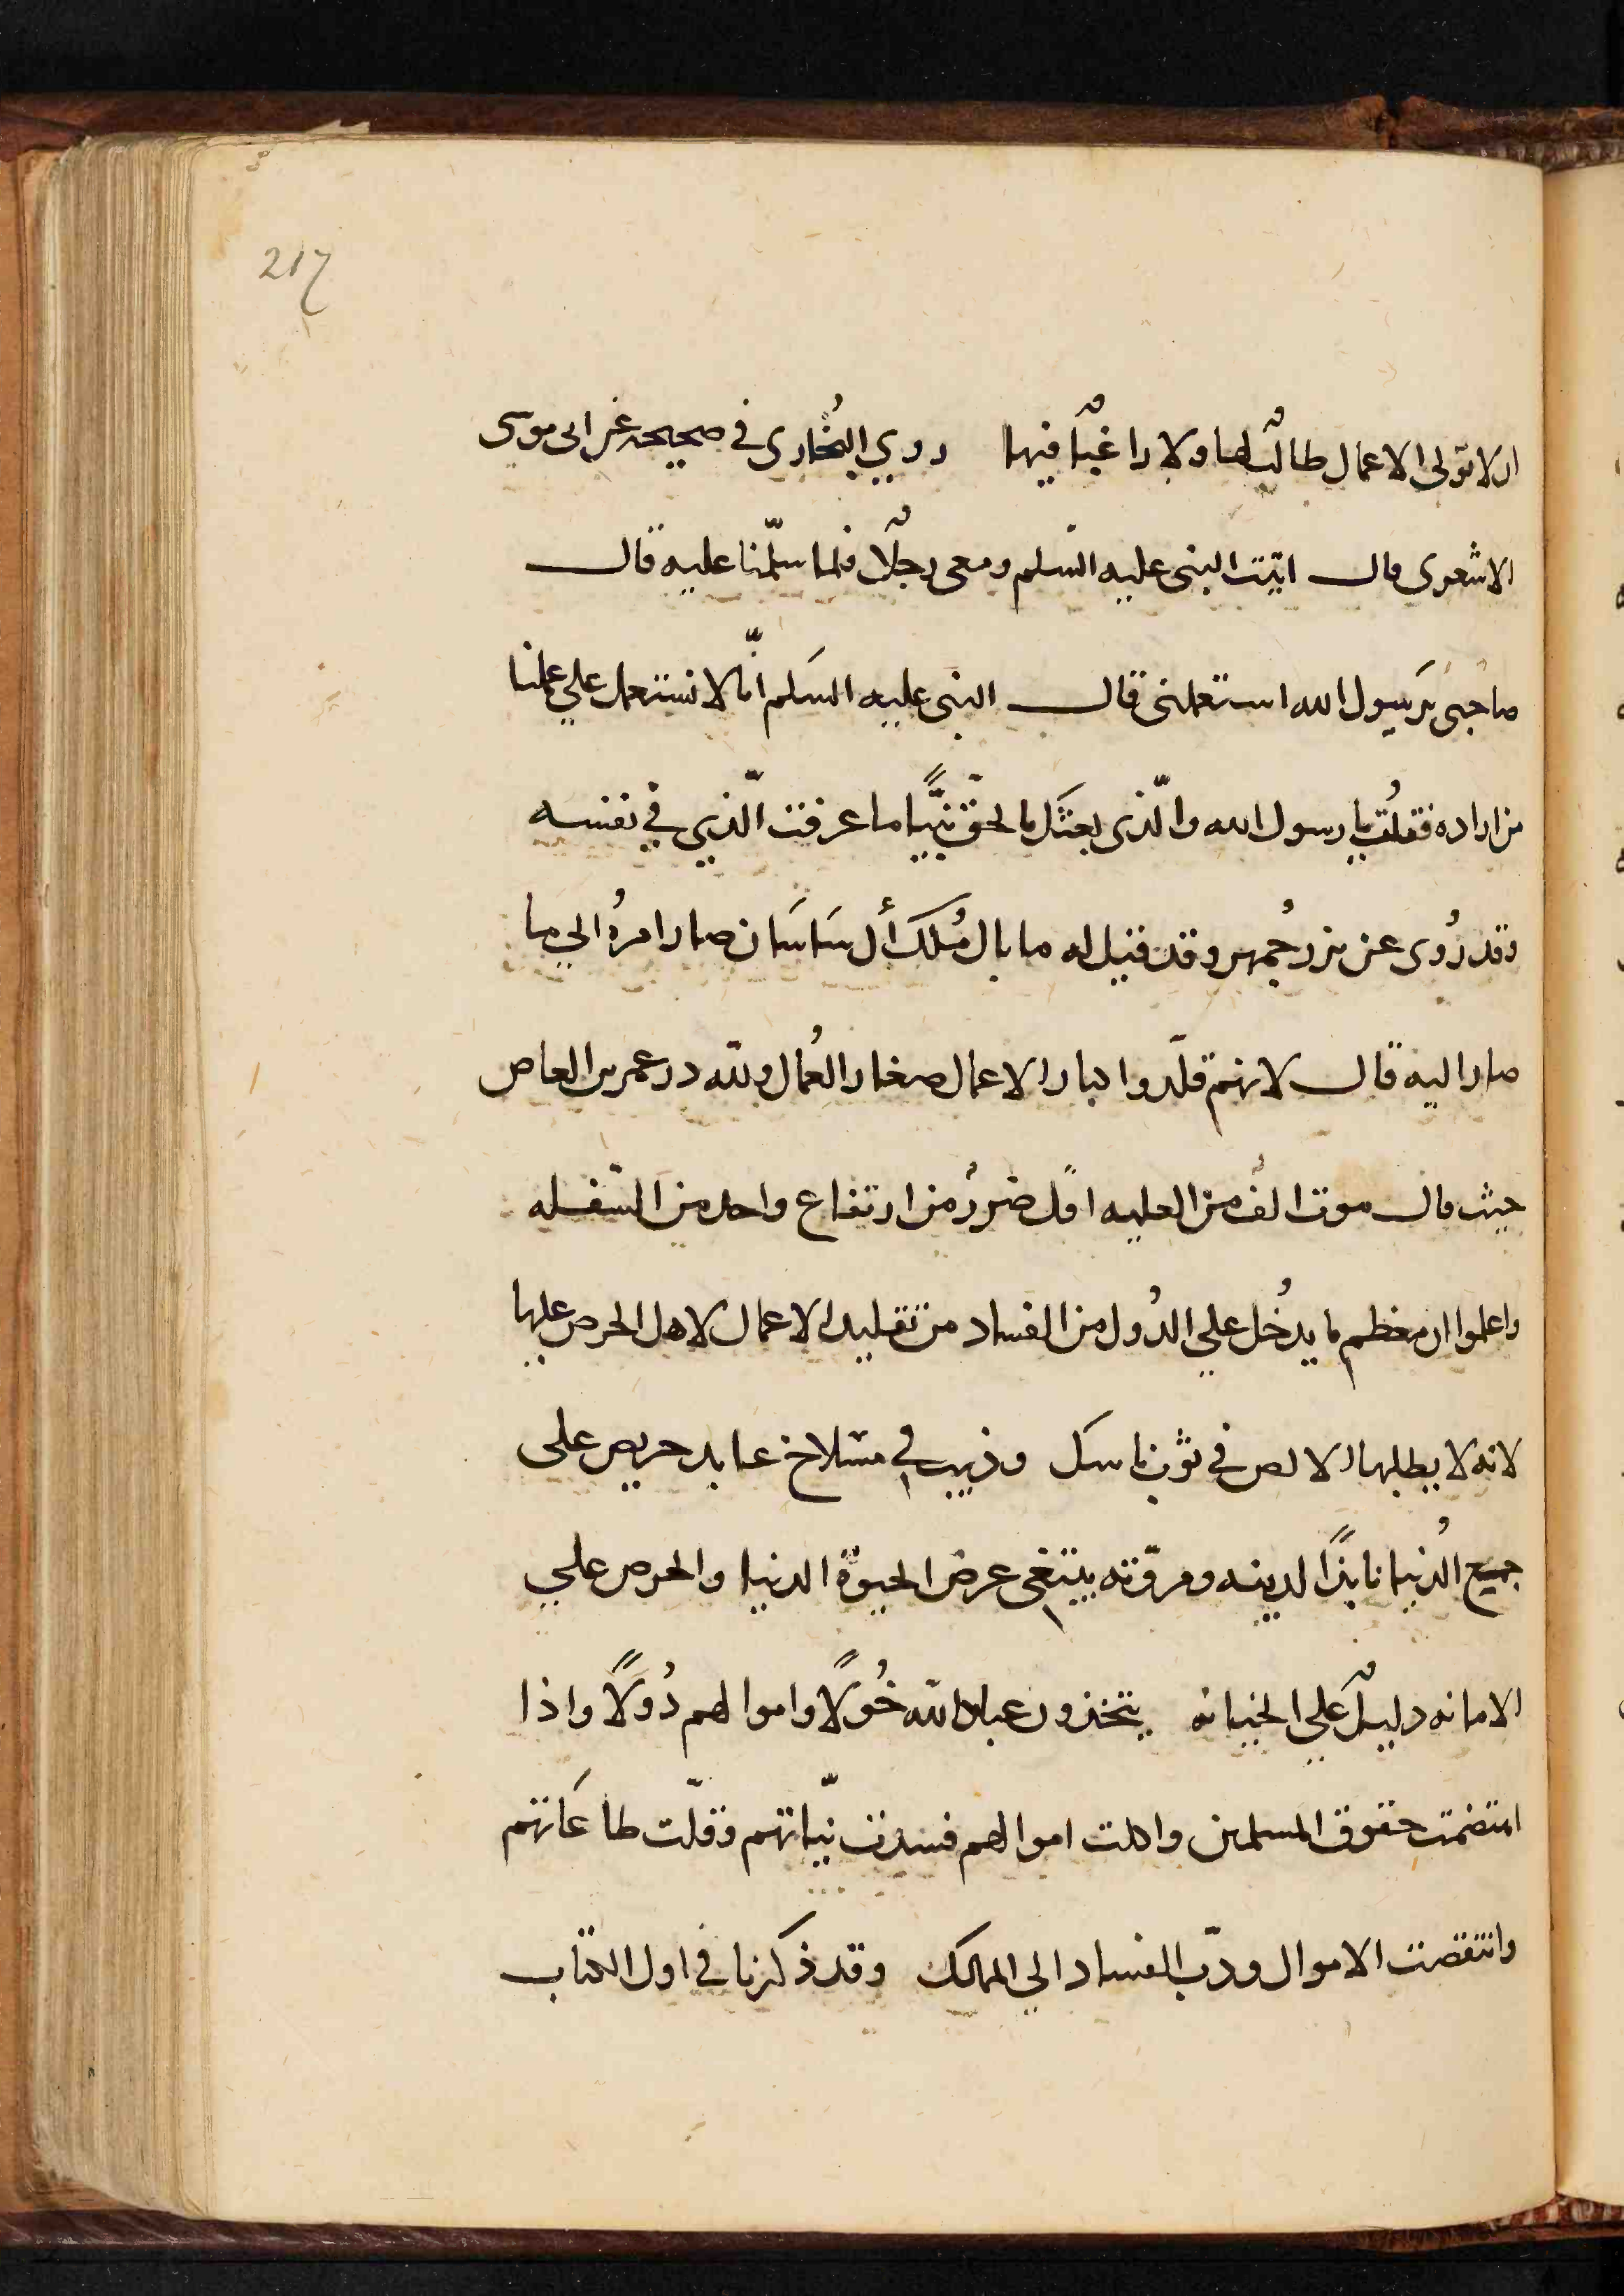 217
ان لا تولى الاعمال طالبًا لها ولا راغبًا فيها روي البُخارى في صحيحه عن ابى موسى
الاشعرى قال اتيت النبى عليه السّلم ومعى رجلًا فلما سلّمنا عليه قال
صاحبى يَرسول الله استعملنى قال النبى عليه السَلم انّا لا نستعمل علي عملنا
من اراده فقلُت يا رسول الله والّذى بعثَك بالحقّ نبيًّا ما عرفت الّذي في نفسه
وقد رُوى عن بزرجُمهر وقد قيل له ما بال مُلك أل سَاسَان صار امرهُ الي ما
صار اليه قال لانهم قلّدوا كبار الاعمال صغار العُمال ولله در عمر بن العاص
حيث قال موت الف من العليه اقل ضررُ من ارتفاع واحد من السّفله
واعلموا ان معظم ما يدخُل علي الدُول من الفساد من تقليد الاعمال لاهل الحرص عليها
لانه لا يطلبها الا لص في ثوب ناسك وذيب في مسلاخ عابد حريص على
جميع الُدنيا نابذًا لدينه ومروّته يبتغى عرض الحيوة الدنيا والحرص علي
الامانه دليلٌ علي الخيانه يتخذون عباد الله خُولًا واموالهم دُولًا واذا
اهتضمت حقوق المسلمين واكلت اموالهم فسدت نيّاتهم وقلّت طاعَاتهم
وانتقصت الاموال ودبّ الفساد الي الممالك وقد ذكرنا في اول الكتاب